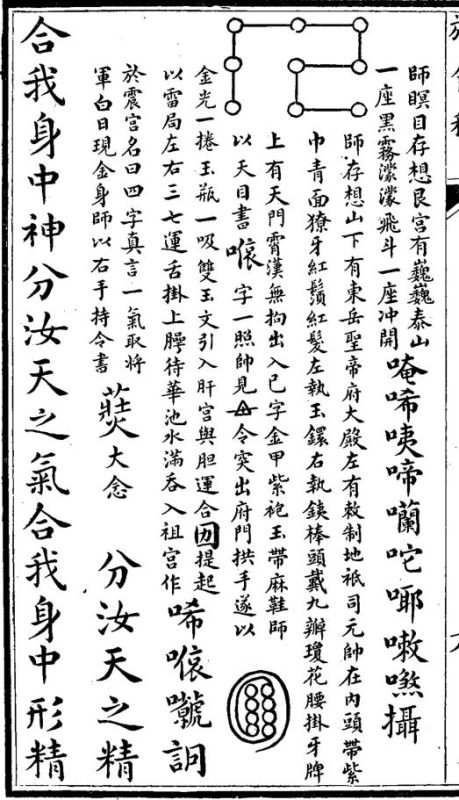 師瞑目存想艮宮有巍巍泰山
一座黑霧濛濛飛斗一座冲開
唵唏咦啼囒咜㖿嗷嘫攝
師存想山下有東岳聖帝府大殿左有敕制地祇司元帥在內頭帶紫
巾青面獠牙紅鬚紅髮左執玉鐶右執鐵棒頭戴九瓣瓊花腰掛牙牌
上有天門霄漢無拘出入已字金甲紫袍玉帶麻鞋師
以天目書㗋字一照帥見令突出府門拱手遂以
金光一捲玉瓶一吸雙玉文引入肝宮與胆運合提起
以雷局左右三七運舌掛上待華池水滿吞入祖宮作
唏㗋詗
於震宮名曰四字真言一氣取將
軍白日現金身師以右手持令書
大念 分汝天之精
合我身中神分汝天之氣合我身中形精